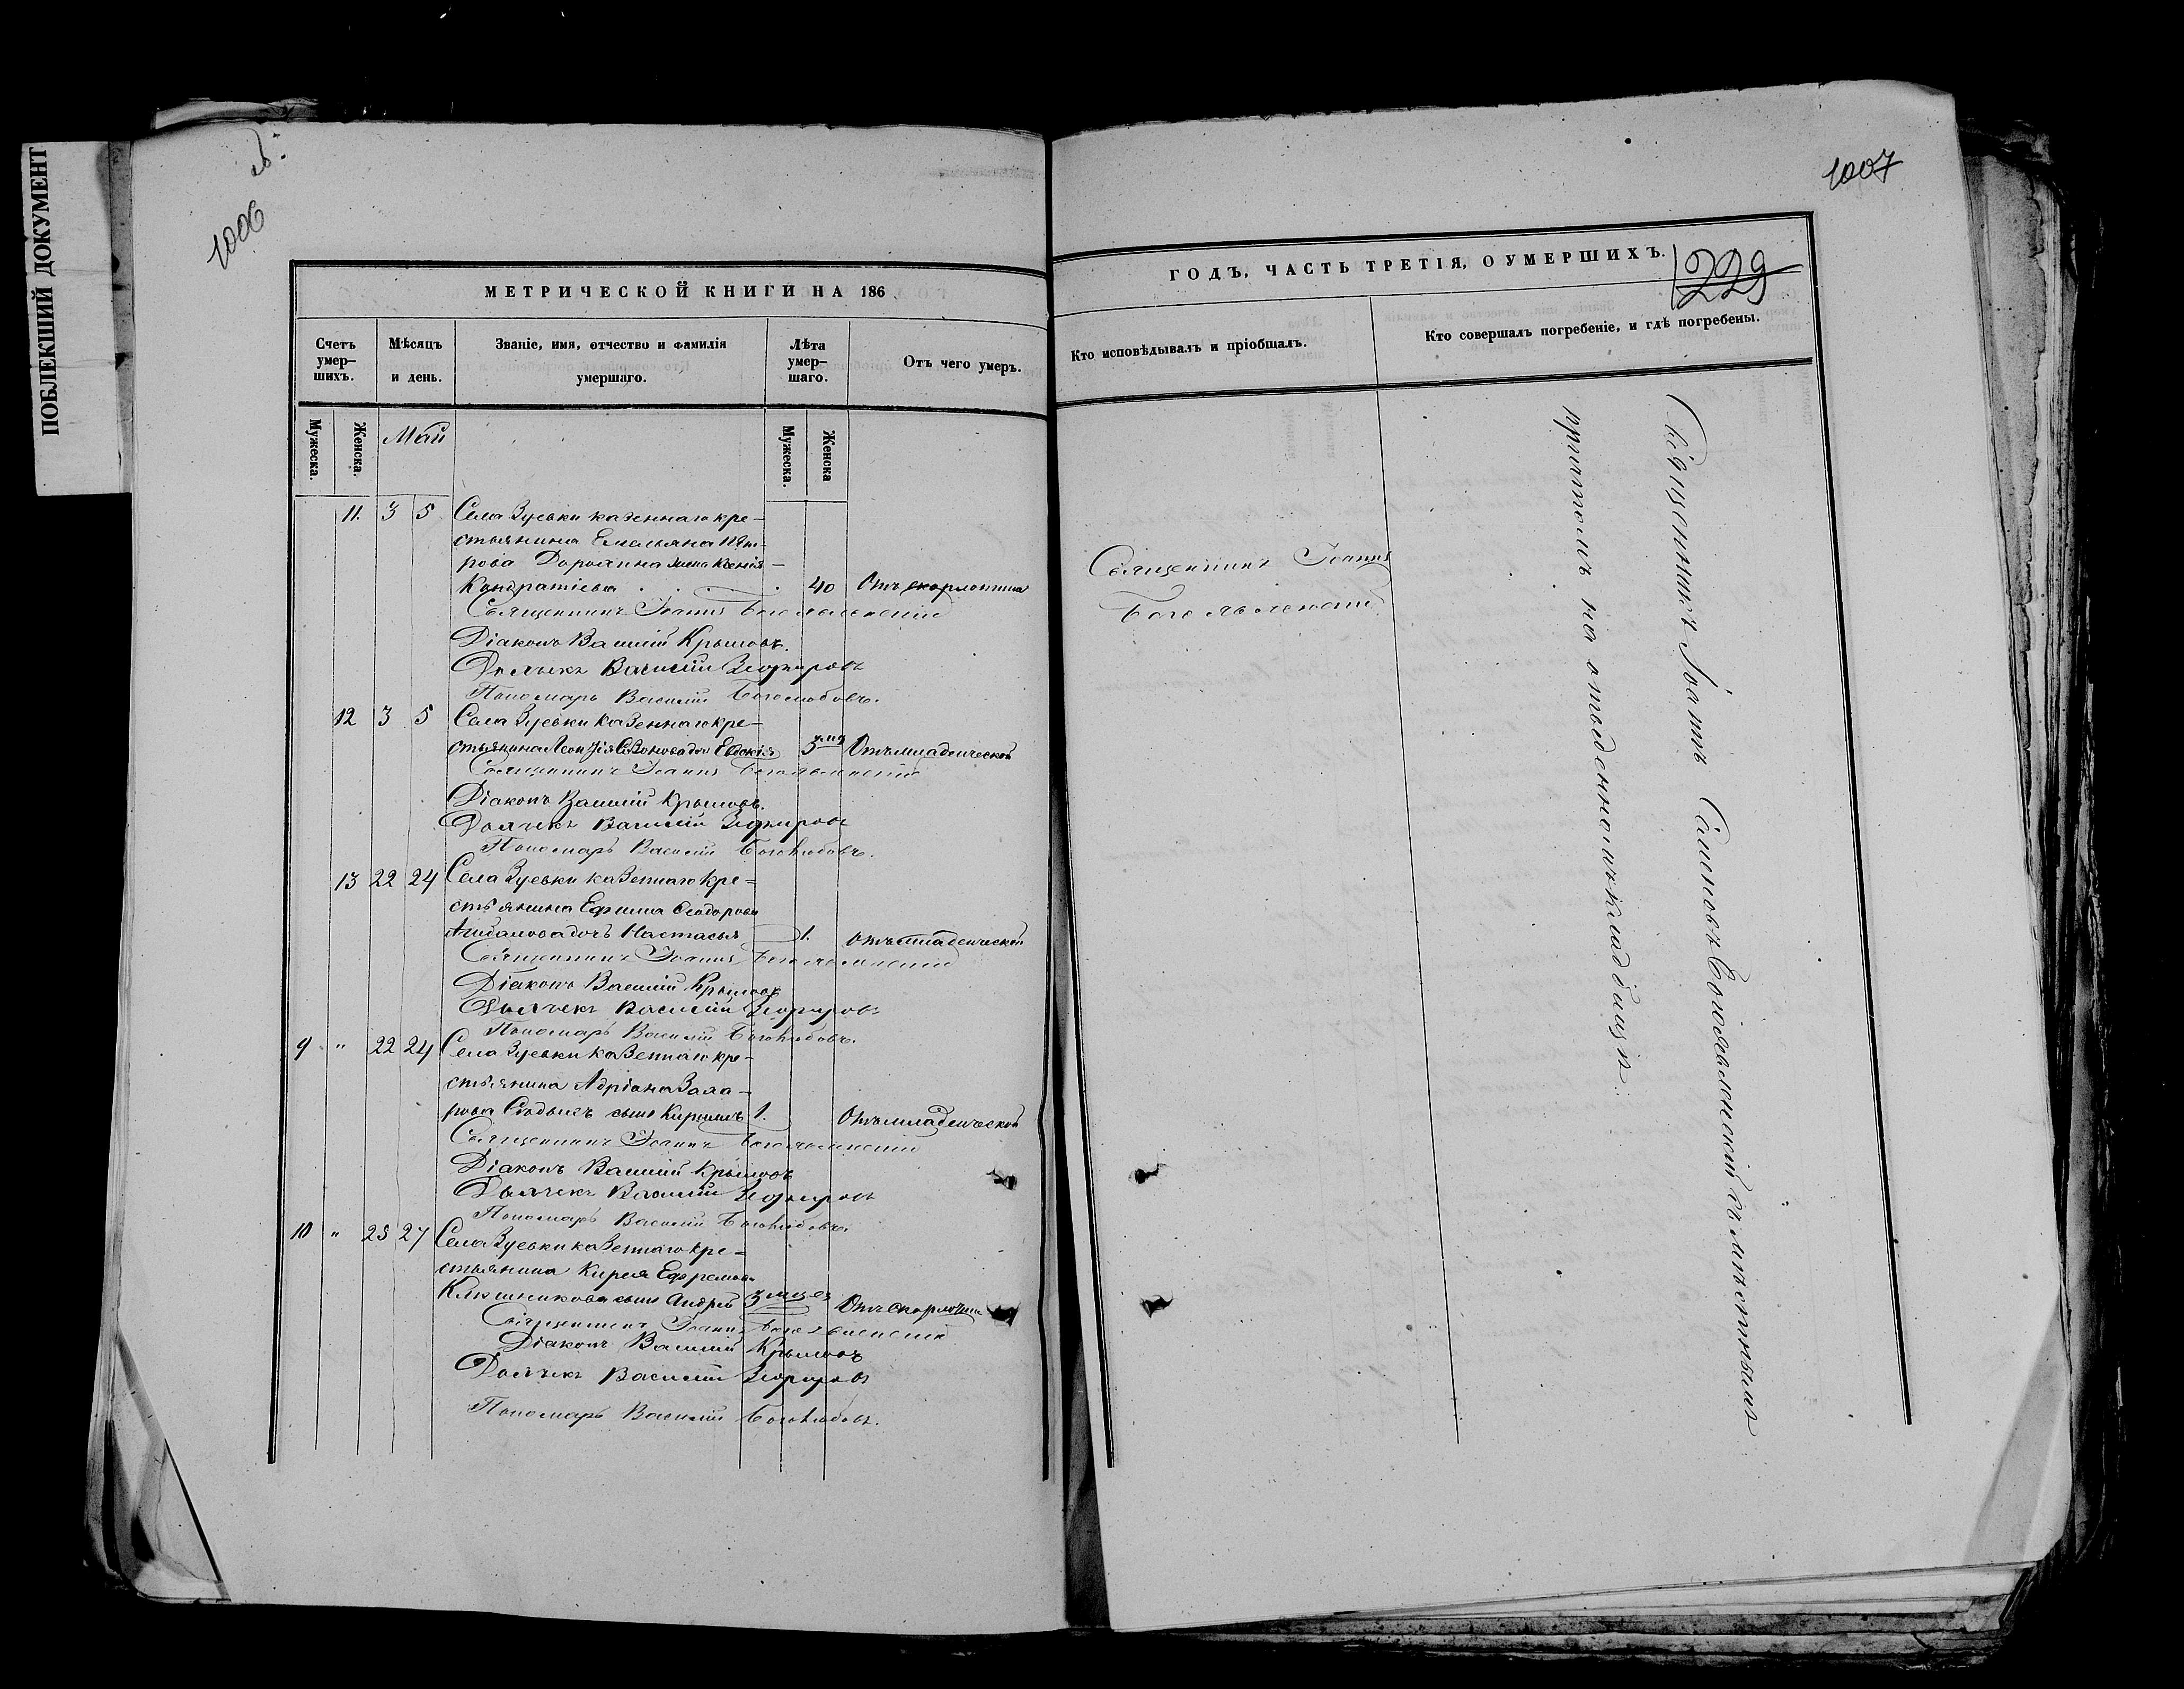 ПОБЛЕКШИЙ ДОКУМЕНТ
1006 об.
МЕТРИЧЕСКОЙ КНИГИ НА 186
Счетъ умер-шихъ.
Мѣсяцъ и день.
Званіе, имя, отчество и фамилія умершаго.
Лѣта умер-шаго.
Отъ чего умеръ.
Мужеска.
Женска.
Май
Мужеска.
Женска
11. 3 5 Села Зуевки казеннаго кре-
стьянина Емельяна Пет-
рова Доронина жена Ксенія
Кондратіева 40 Отъ скорлотина
Священникъ Іоаннъ Богоявленскій
Діаконъ Василій Крыловъ.
Дьячекъ Василій Зефировъ
Пономарь Василій Боголюбовъ.
12 3 5 Села Зуевки казеннаго кре-
стьянина дочь Евдокія Отъ младенческой
Священникъ Іоаннъ Богоявленскій
Діаконъ Василій Крыловъ.
Дьячекъ Василій Зефировъ
Пономарь Василій Боголюбовъ.
13 22 24 Села Зуевки казеннаго кре=
стьянина Ефима Ѳеодорова
дочь Настасья 1. Отъ младенческой
Священникъ Іоаннъ Богоявленскій
Діаконъ Василій Крыловъ
Дьячекъ Василій Зефировъ
Пономарь Василій Боголюбовъ.
9 " 22 24 Села Зуевки казеннаго кре-
стьянина Адріана Заха-
рова сынъ Кириллъ 1. Отъ младенческой
Священникъ Іоаннъ Богоявленскій
Діаконъ Василій Крыловъ
Дьячекъ Василій Зефировъ
Пономарь Василій Боголюбовъ.
10 " 25 27 Села Зуевки казеннаго кре-
стьянина Кирея Ефремова
Ключникова сынъ Андрей 3 Отъ скорлотина
Священникъ Іоаннъ Богоявленскій
Діаконъ Василій Крыловъ
Дьячекъ Василій Зефировъ
Пономарь Василій Боголюбовъ.
1007
ГОДЪ, ЧАСТЬ ТРЕТІЯ, О УМЕРШИХЪ.
229
Кто исповѣдывалъ и пріобщалъ.
Кто совершалъ погребеніе, и гдѣ погребены.
Священникъ Іоаннъ
Богоявленскій
Священникъ Іоаннъ Богоявленскій съ мѣстнымъ
причтомъ на отведенномъ кладбищѣ.